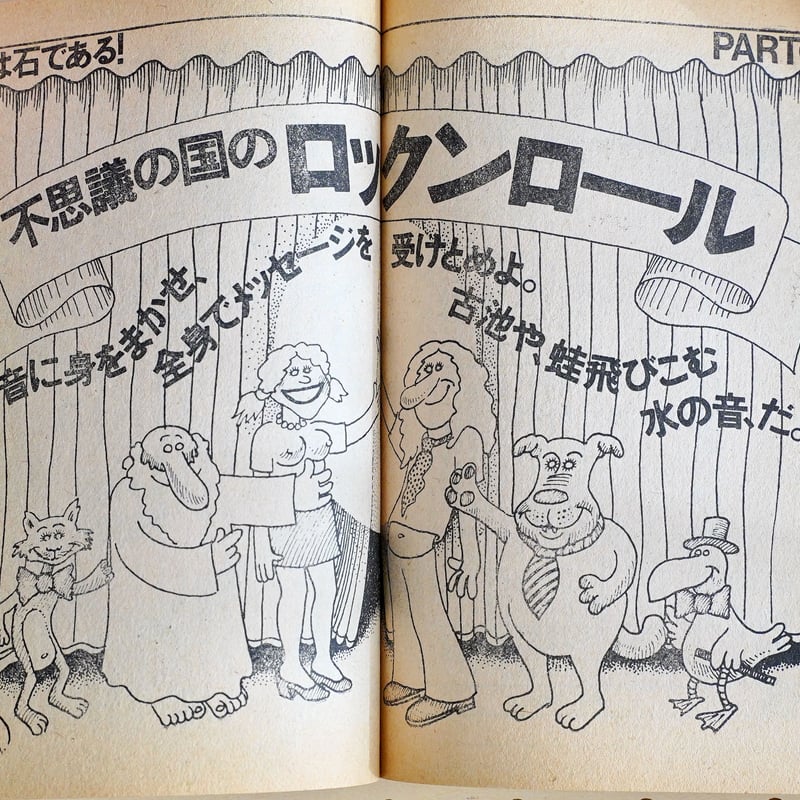 は石である!
PART
不思議の国のロックンロール
音に身をまかせ、
全身でメッセージを受けとめよ。
古池や、蛙飛びこむ
水の音、だ。